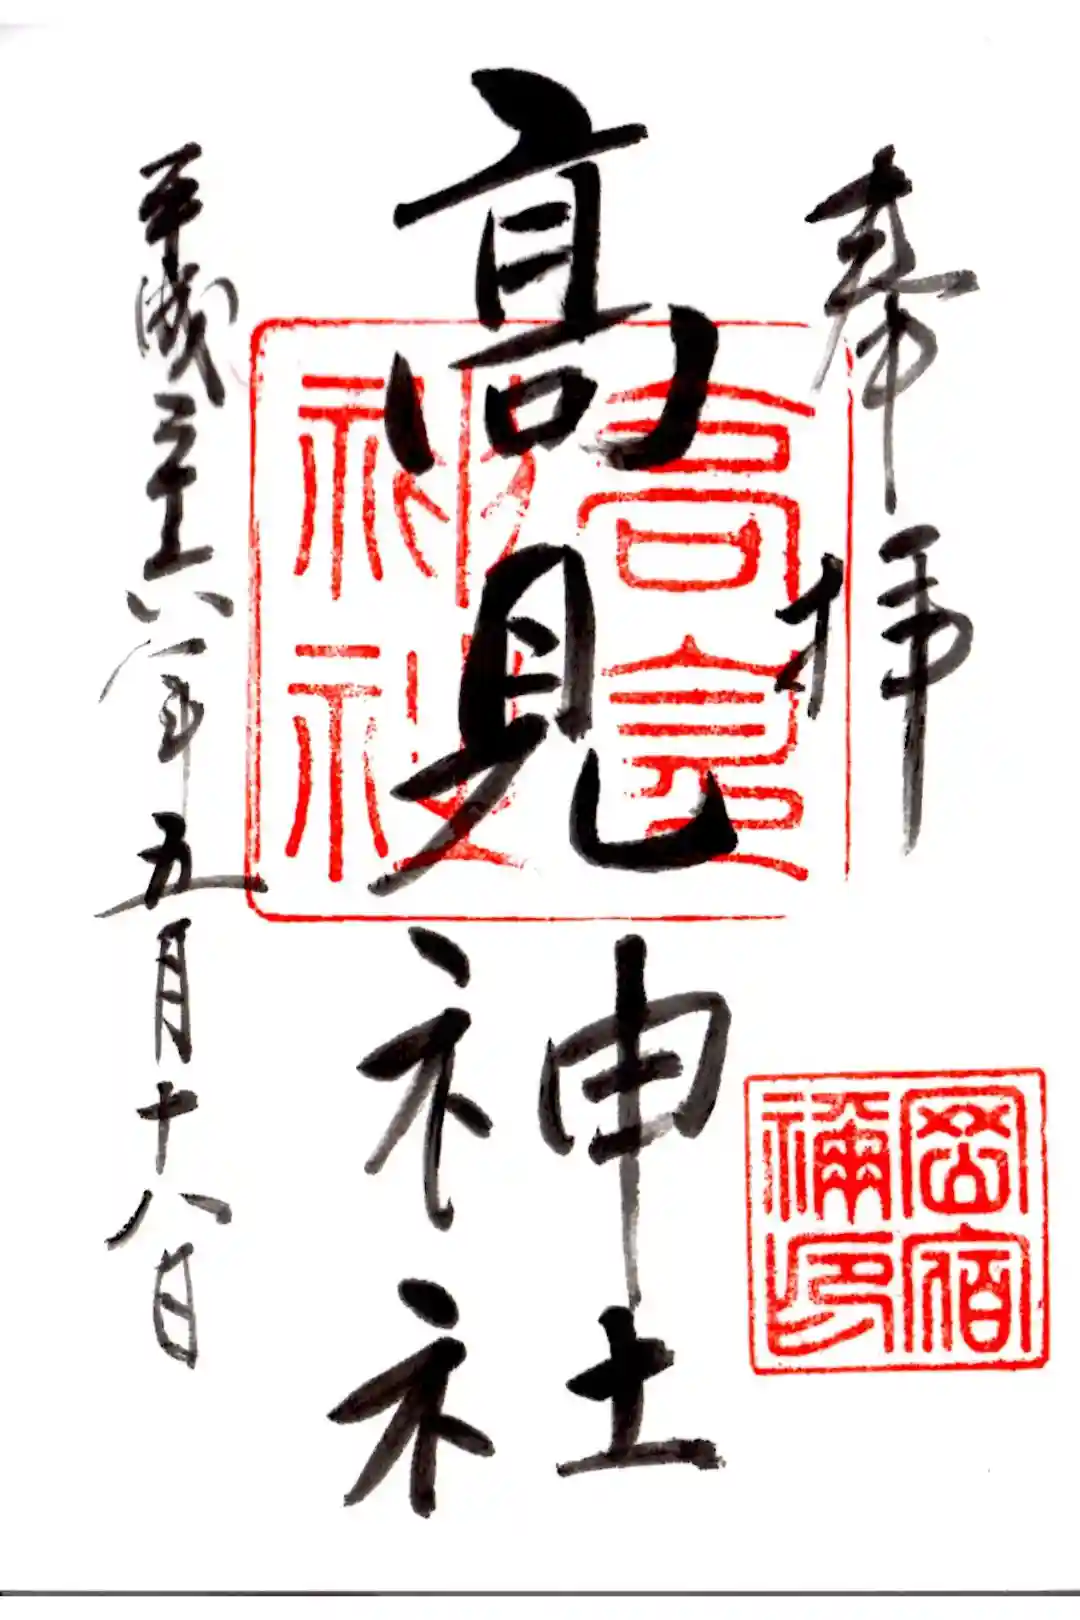 奉拝
高見神社
平成二十六年五月十八日
高良神社
岡宿禰印